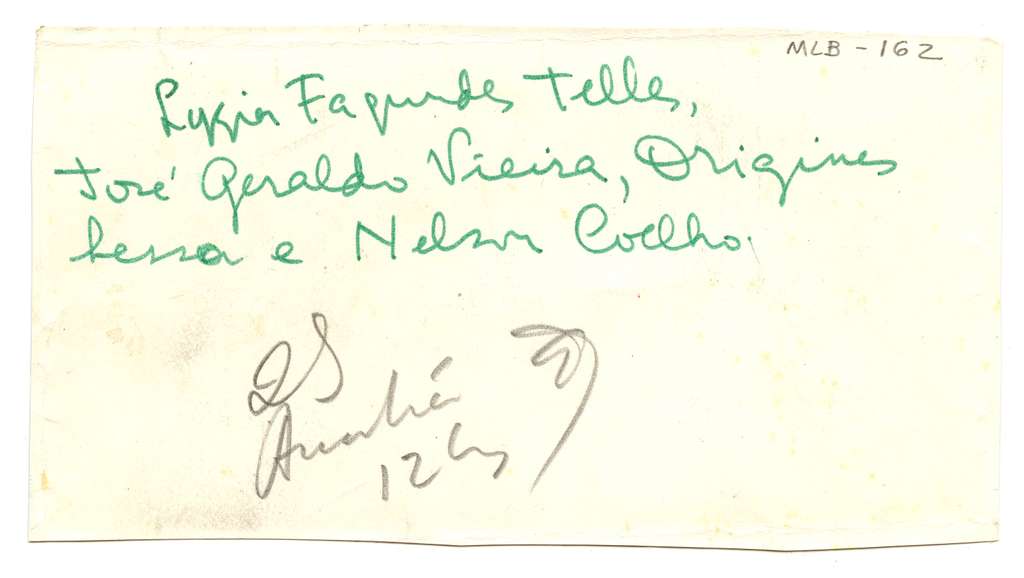 MLB - 162
Lygia Fagundes Telles,
José Geraldo Vieira, Origines
Lessa e Nelson Coelho.
Amanhã
12 hs